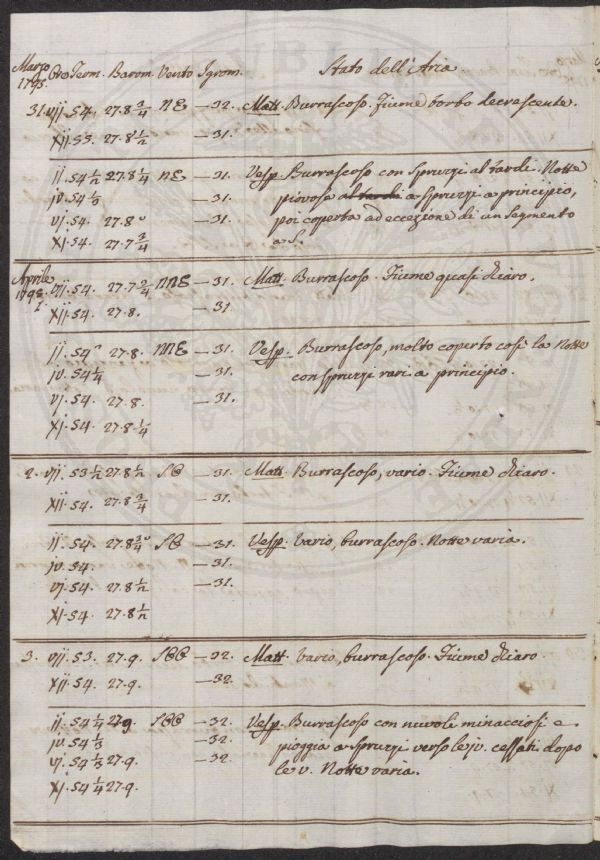 Marzo
1795. Ore Term. Barom. Vento Igrom. Stato dell'Aria
31. vij. 54. 27.8 3/4 NE — 32. Matt. Burrascoso. Fiume torbo decrescente.
xij. 53. 27.8 1/2 — 31.
ij. 54 1/2 27.8 1/4 NE — 31. Vesp. Burrascoso con spruzzi al tardi. Notte
iv. 54 1/3 — 31. piovosa al tardi a spruzzi a principio,
vj. 54. 27.8° — 31. poi coperta ad eccezione di un segmento
xj. 54. 27.7 3/4 a S.
Aprile
1795.
1. vij. 54. 27.7 3/4 NNE — 31. Matt. Burrascoso. Fiume quasi chiaro.
xij. 54. 27.8. — 31.
ij. 54 27.8. NNE — 31. Vesp. Burrascoso, molto coperto così la Notte
iv. 54 1/4 — 31. con spruzzi rari a principio.
vj. 54. 27.8. — 31.
xj. 54. 27.8 1/4
2. vij. 53 1/2 27.8 1/2 SE — 31. Matt. Burrascoso, vario. Fiume chiaro.
xij. 54. 27.8 3/4 — 31.
ij. 54. 27.8 3/4° SE — 31. Vesp. Vario, burrascoso. Notte varia.
iv. 54. — 31.
vj. 54. 27.8 1/2 — 31.
xj. 54. 27.8 1/2
3. vij. 53. 27.9. SEE — 32. Matt. Vario, burrascoso. Fiume chiaro.
xij. 54. 27.9. — 32.
ij. 54 1/4 27.9 SEE — 32. Vesp. Burrascoso con nuvoli minacciosi e
iv. 54 1/3 — 32. pioggia a spruzzi verso le iv. cessati dopo
vj. 54 1/3 27.9. — 32. le v. Notte varia.
xj. 54 1/4 27.9.